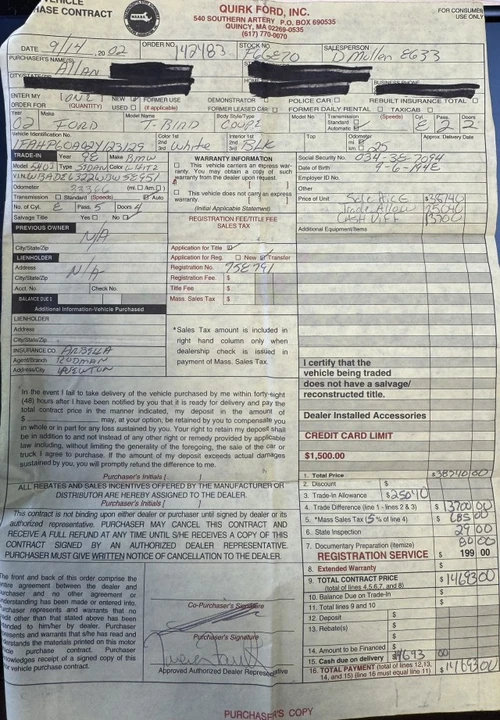 VEHICLE
PURCHASE CONTRACT
QUIRK FORD, INC.
540 SOUTHERN ARTERY P.O. BOX 690535
QUINCY, MA 02269-0535
(617) 770-0070
FOR CONSUMER
USE ONLY
DATE 9/14 20 02 ORDER NO. 42483 STOCK NO. SALESPERSON D Mullen E633
PURCHASER'S NAME(S) Allan
ENTER MY ORDER FOR 1 ONE (QUANTITY) NEW USED FORMER USE (if applicable) DEMONSTRATOR FORMER LEASED CAR POLICE CAR FORMER DAILY RENTAL TAXICAB REBUILT INSURANCE TOTAL
Year 02 Make FORD Model Name T-BIRD Body Style/Type COUPE Transmission Standard Automatic (Speeds) Cyl. Pass. 2 Doors 2
Vehicle Identification No. Color 1st 2nd White Interior 1st 3rd BLK Top Odometer IN OUT 25 Approx. Delivery Date
TRADE-IN Year 98 Make BMW
Model 540I Type SEDAN Color
V.I.N.
Odometer (mi. / km.)
Transmission Standard (Speeds) Auto
No. of Cyl. 8 Pass. 5 Doors 4
Salvage Title Yes No
WARRANTY INFORMATION
This vehicle carries an express warranty. You may obtain a copy of such warranty from the dealer upon request.
This vehicle does not carry an express warranty.
(Initial Applicable Statement)
Social Security No.
Date of Birth
Employer ID No.
Other
Price of Unit Sale Price
Trade Allow 25040
Cash Diff 13700
Additional Equipment/Items
PREVIOUS OWNER
N/A
City/State/Zip
REGISTRATION FEE/TITLE FEE
SALES TAX
LIENHOLDER
Address N/A
City/State/Zip
Acct. No. Check No.
BALANCE DUE $
Application for Title
Application for Reg. New Transfer
Registration No. 758791
Registration Fee. $
Title Fee $
Mass. Sales Tax $
Additional Information-Vehicle Purchased
LIENHOLDER
Address
City/State/Zip
INSURANCE CO. ARBELLA
Agent/Branch RODMAN
Address/City NEWTON
*Sales Tax amount is included in
right hand column only when
dealership check is issued in
payment of Mass. Sales Tax.
I certify that the
vehicle being traded
does not have a salvage/
reconstructed title.
Dealer Installed Accessories
CREDIT CARD LIMIT
$1,500.00
In the event I fail to take delivery of the vehicle purchased by me within forty-eight
(48) hours after I have been notified by you that it is ready for delivery and pay the
total contract price in the manner indicated, my deposit in the amount of
$ may, at your option, be retained by you to compensate you
in whole or in part for any loss sustained by you. Your right to retain my deposit shall
be in addition to and not instead of any other right or remedy provided by applicable
law including, without limiting the generality of the foregoing, the sale of the car or
truck I agree to purchase. If the amount of my deposit exceeds actual damages
sustained by you, you will promptly refund the difference to me.
Purchaser's Initials [ ]
ALL REBATES AND SALES INCENTIVES OFFERED BY THE MANUFACTURER OR
DISTRIBUTOR ARE HEREBY ASSIGNED TO THE DEALER.
Purchaser's Initials [ ]
This contract is not binding upon either dealer or purchaser until signed by dealer or its
authorized representative. PURCHASER MAY CANCEL THIS CONTRACT AND
RECEIVE A FULL REFUND AT ANY TIME UNTIL S/HE RECEIVES A COPY OF THIS
CONTRACT SIGNED BY AN AUTHORIZED DEALER REPRESENTATIVE.
PURCHASER MUST GIVE WRITTEN NOTICE OF CANCELLATION TO THE DEALER.
1. Total Price $
2. Discount $
3. Trade-In Allowance $ 25040
4. Trade Difference (line 1 - lines 2 & 3) $ 13700 00
5. *Mass Sales Tax (5% of line 4) $ 685 00
6. State Inspection 29 00
7. Documentary Preparation (itemize) 80 00
REGISTRATION SERVICE $ 199 00
8. Extended Warranty
9. TOTAL CONTRACT PRICE $ 14693 00
(total of lines 4,5,6,7, and 8)
10. Balance Due on Trade-In $
11. Total lines 9 and 10 $
12. Deposit $
13. Rebate(s) $
14. Amount to be Financed $
15. Cash due on delivery $ 14693 00
16. TOTAL PAYMENT (total of lines 12,13,
14, and 15) (line 16 must equal line 11) $ 14693 00
The front and back of this order comprise the
entire agreement between the dealer and
purchaser and no other agreement or
understanding has been made or entered into.
Purchaser represents and warrants that no
credit other than that stated above has been
extended to him/her by dealer. Purchaser
represents and warrants that s/he has read and
understands the materials printed on this motor
vehicle purchase contract. Purchaser
acknowledges receipt of a signed copy of this
vehicle purchase contract.
Co-Purchaser's Signature
Purchaser's Signature
Approved Authorized Dealer Representative
PURCHASER'S COPY